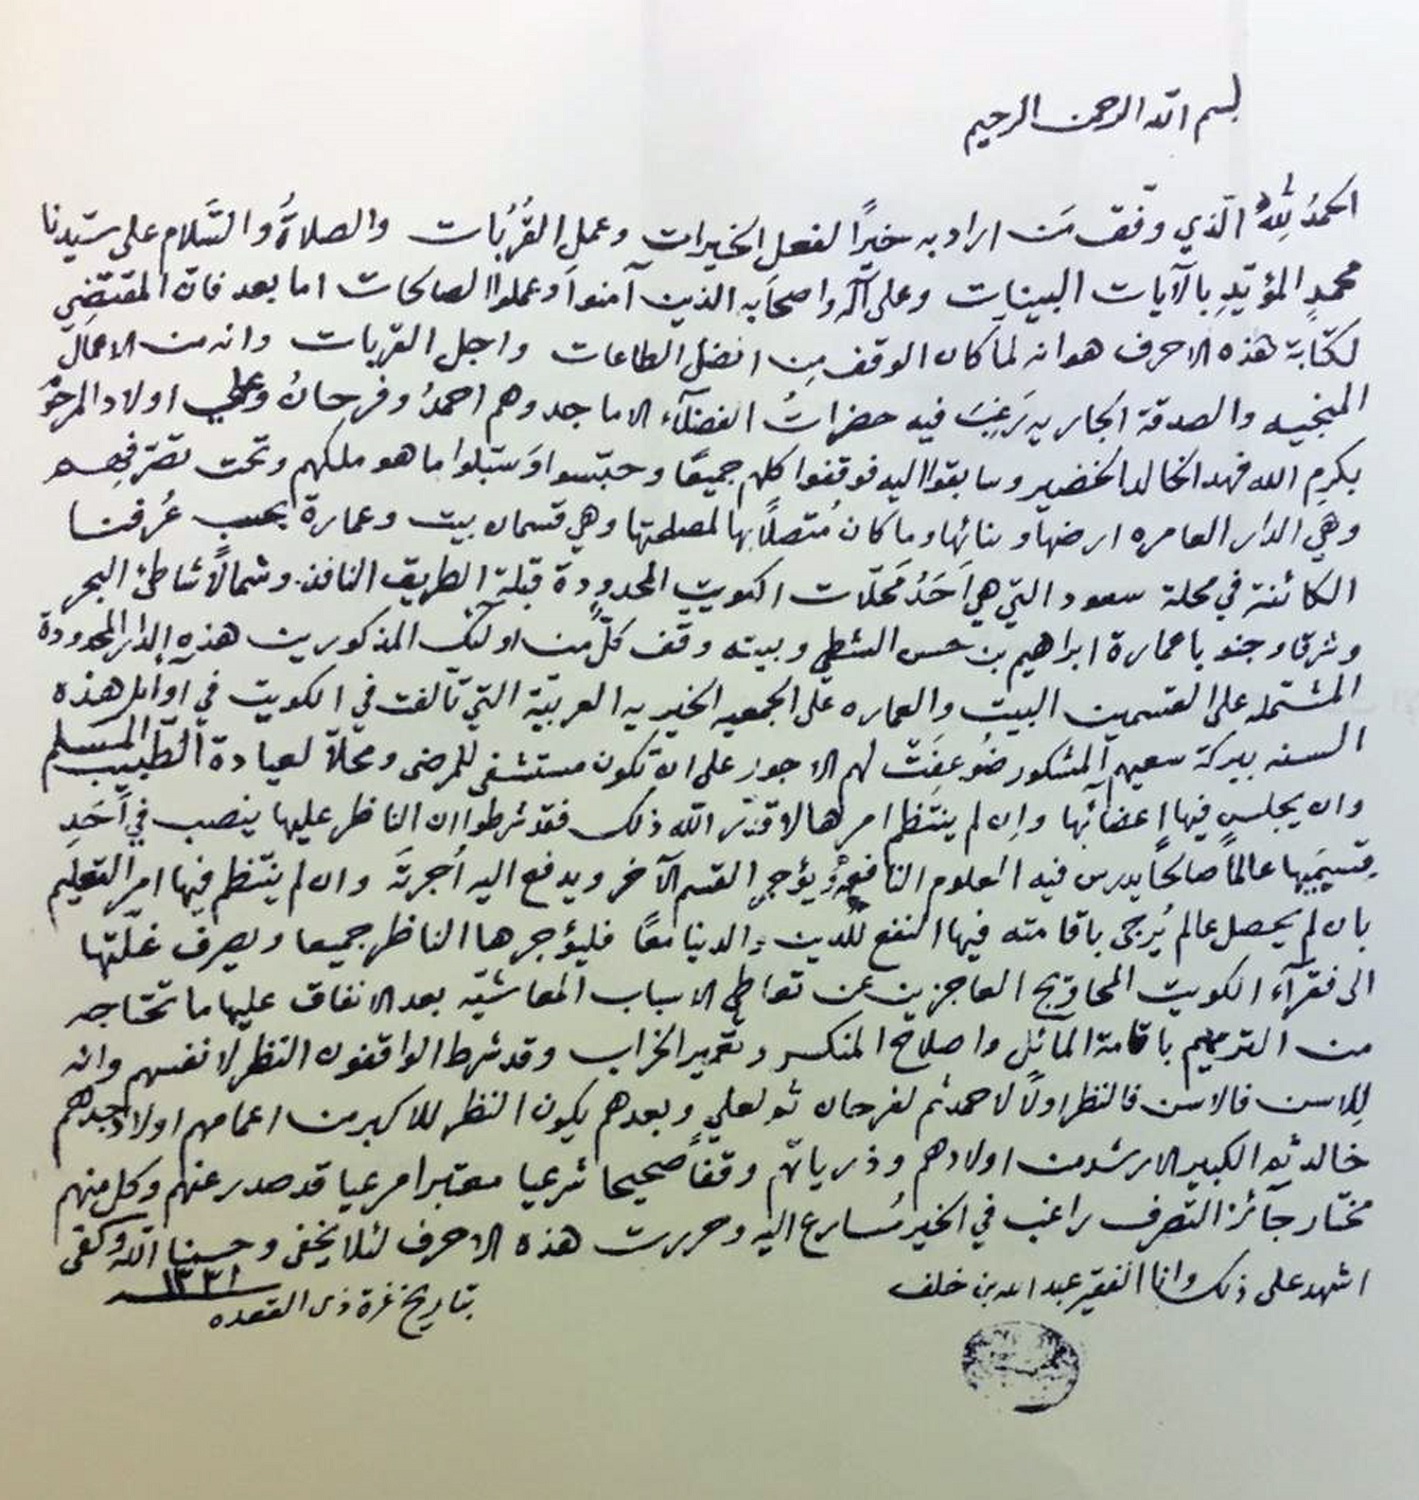 بسم الله الرحمن الرحيم
الحمدُ لِلّٰه الّذي وفّق مَن اراد به خيرًا لفعل الخيرات وعمل القُرُبات والصلاةُ والسَّلام على سيّدنا
محمدٍ المؤيّدِ بالآيات البينات وعلى آله واصحابه الذين آمنوا وعملوا الصالحات اما بعد فان المقتضي
لكتابة هذه الاحرف هو انه لما كان الوقف مِن افضل الطاعات واجل القربات وانه من الاعمال
المنجيه والصدقة الجاريه رَغِبَ فيه حضراتُ الفضلآء الاماجد وهم احمدُ وفرحانُ وعلي اولاد المرحوم
بكرم الله فهد الخالد الخضير وسابقوا اليه فوقفوا كلهم جميعًا وحبّسوا وَسبّلوا ما هو ملكهم وتحت تصرّفهم
وهي الدار العامره ارضها وبنائها وما كان مُتصلًا بها لمصلحتها وهي قسمان بيت وعمارة بحسب عُرفنا
الكائنة في محلة سعود التي هي اَحَدُ مَحلّات الكويت المحدودة قبلةً الطريق النافذ. وشمالًا شاطئ البحر
وشرقا وجنوبا عمارة ابراهيم بن حسن الشطي وبيته وقف كلٌّ من اولئك المذكورين هذه الدار المحدودة
المشتمله على القسمين البيت والعماره على الجمعيه الخيريه العربيّة التي تآلفت في الكويت في اوايل هذه
السنه ببركة سعيهم المشكور ضُوعِفَتْ لهم الاجور على ان تكون مستشفى للمرضى ومحلاً لعيادة الطّبيب المسلم
وان يجلس فيها اعضائها وإن لم ينتظم امرها لا قدّر الله ذلك فقد شرطوا ان الناظر عليها ينصب في اَحَدِ
قِسمَيها عالمًا صالحًا يدرس فيه العلوم النافعه ويؤجر القسم الآخر ويدفع اليه اُجرتَه وان لم ينتظم فيها امر التعليم
بان لم يحصل عالم يُرجى باقامته فيها النفع للدين والدنيا معًا فليؤجرها الناظر جميعا ويصرف غلّتها
الى فقرآء الكويت المحاويج العاجزين عن تعاطي الاسباب المعاشيّه بعد الانفاق عليها ما تحتاجه
من الترميم باقامة المائل واصلاح المنكسر وتعمير الخراب وقد شرط الواقفون النظر لانفسهم وانه
للاسن فالاسن فالنظر اولًا لاحمد ثم لفرحان ثم لعلي وبعدهم يكون النظر للاكبر من اعمامهم اولاد جدهم
خالد ثم الكبير الارشد من اولادهم وذرياتهم وقفًا صحيحا شرعيا معتبرا مرعيا قد صدر عنهم وكل منهم
مختار جآئز التصرف راغب في الخير مُسارع اليه وحررت هذه الاحرف لئلا يخفى وحسبنا اللهُ وكفى
اشهد على ذلك وانا الفقير عبد الله بن خلف
بتاريخ غرة ذي القعده ١٣٣١